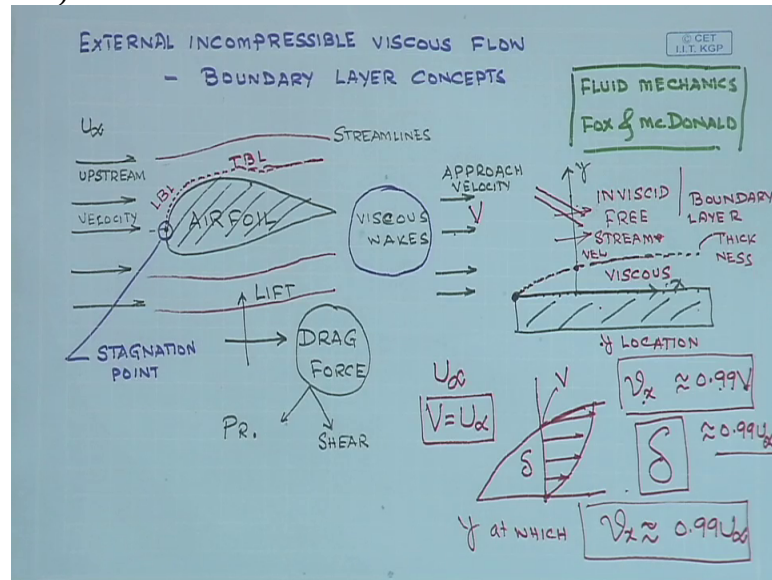 EXTERNAL INCOMPRESSIBLE VISCOUS FLOW
- BOUNDARY LAYER CONCEPTS
© CET
I.I.T. KGP
FLUID MECHANICS
FOX & MCDONALD
U∝
UPSTREAM
VELOCITY
STREAMLINES
LBL
TBL
AIRFOIL
VISCOUS
WAKES
STAGNATION
POINT
LIFT
DRAG
FORCE
PR.
SHEAR
APPROACH
VELOCITY
V
y
INVISCID
FREE
STREAM
VEL
BOUNDARY
LAYER
THICK
NESS
VISCOUS
x
y LOCATION
U∝
V=U∝
V
δ
δ
ϑx ≈ 0.99V
≈ 0.99U∝
y AT WHICH
ϑx ≈ 0.99U∝